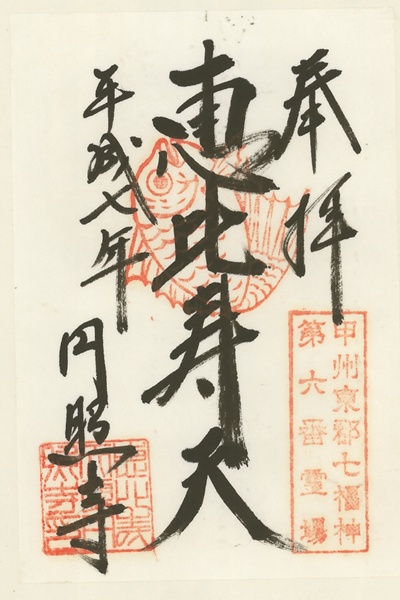 奉拝
甲州東郡七福神
第六番霊場
恵比寿天
平成七年
円照寺